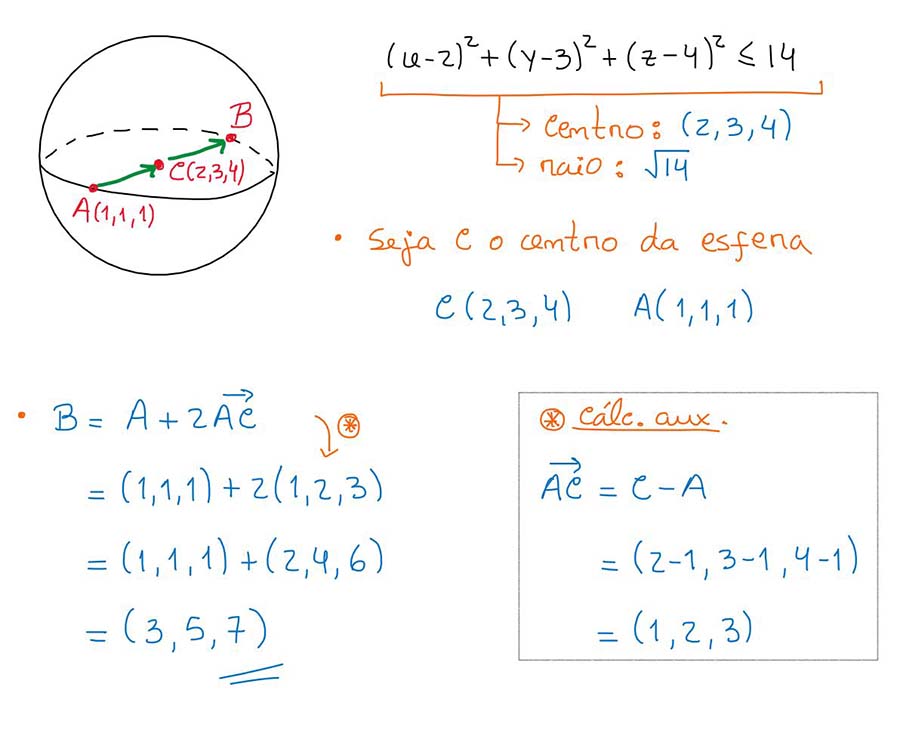 (x-2)² + (y-3)² + (z-4)² ≤ 14
→ Centro: (2,3,4)
→ raio: √14
B
C(2,3,4)
A(1,1,1)
• Seja C o centro da esfera
C(2,3,4) A(1,1,1)
• B = A + 2\overrightarrow{AC} ⊛
= (1,1,1) + 2(1,2,3)
= (1,1,1) + (2,4,6)
= (3,5,7)
⊛ cálc. aux.
\overrightarrow{AC} = C - A
= (2-1, 3-1, 4-1)
= (1,2,3)